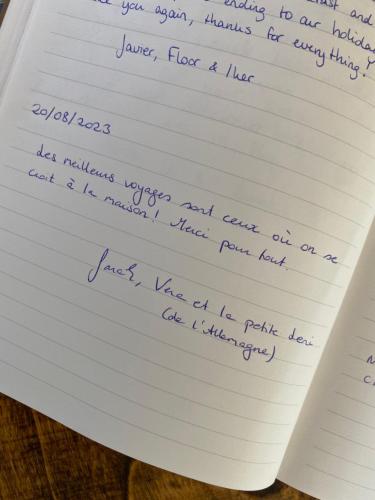 ending to our holiday
you again, thanks for everything!
Javier, Floor & Iker
20/08/2023
des meilleurs voyages sont ceux où on se
croit à la maison! Merci pour tout.
Vera et la petite
(de l'Allemagne)